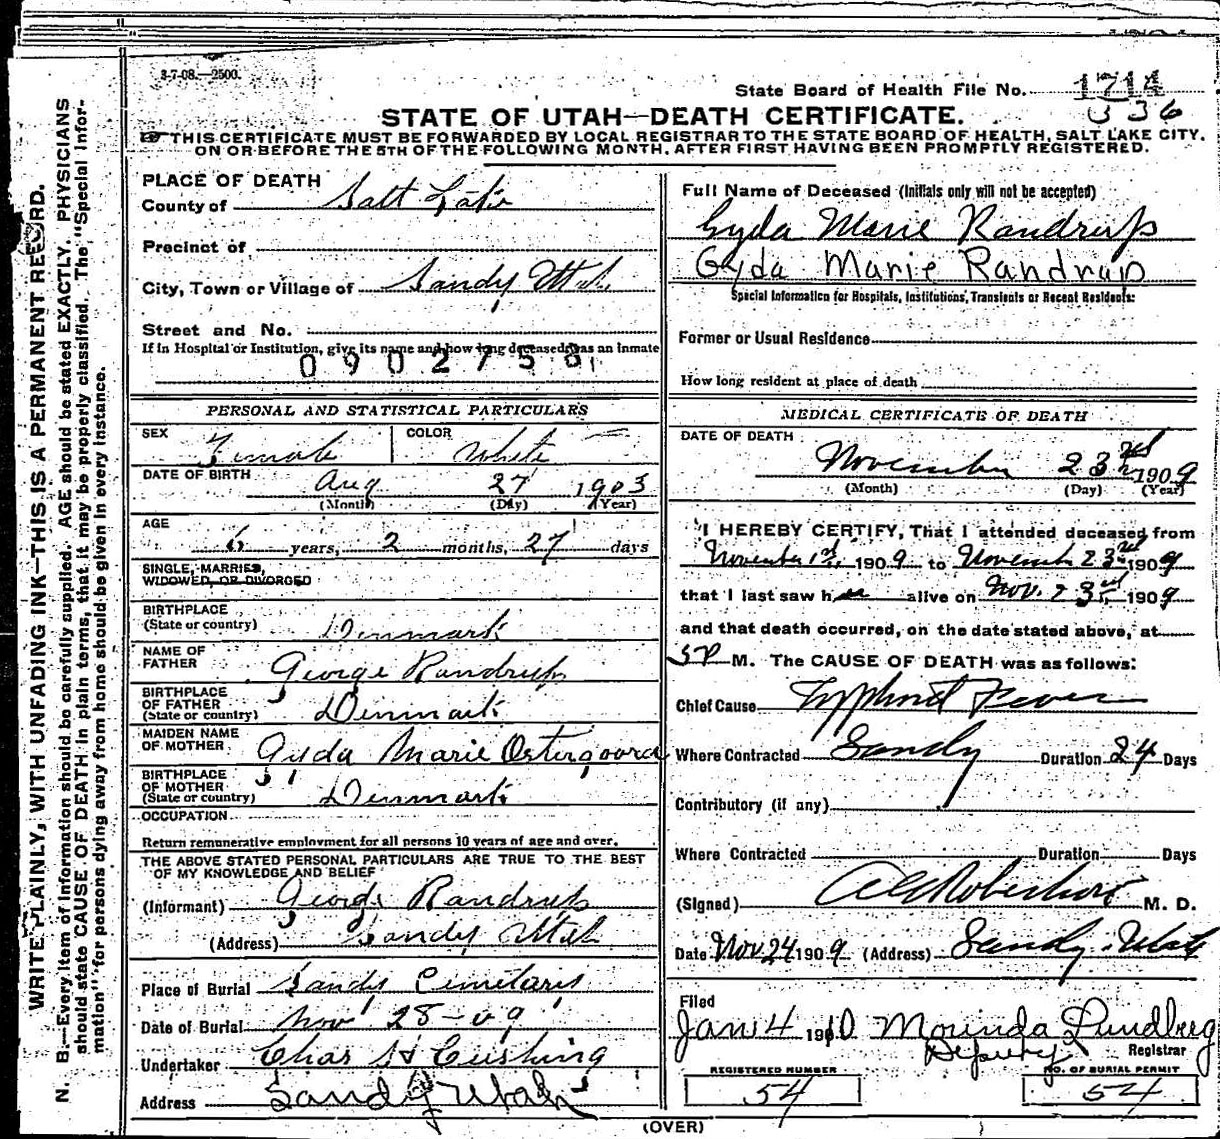 WRITE PLAINLY, WITH UNFADING INK—THIS IS A PERMANENT RECORD.
N. B.—Every item of information should be carefully supplied. AGE should be stated EXACTLY. PHYSICIANS
should state CAUSE OF DEATH in plain terms, that it may be properly classified. The "Special Infor-
mation" for persons dying away from home should be given in every instance.
3-7-08.—2500.
State Board of Health File No. 1714
336
STATE OF UTAH—DEATH CERTIFICATE.
THIS CERTIFICATE MUST BE FORWARDED BY LOCAL REGISTRAR TO THE STATE BOARD OF HEALTH, SALT LAKE CITY,
ON OR BEFORE THE 5TH OF THE FOLLOWING MONTH, AFTER FIRST HAVING BEEN PROMPTLY REGISTERED.
PLACE OF DEATH
County of Salt Lake
Precinct of
City, Town or Village of Sandy Utah
Street and No.
If in Hospital or Institution, give its name and how long deceased was an inmate
0902758
PERSONAL AND STATISTICAL PARTICULARS
SEX Female COLOR White
DATE OF BIRTH Aug 27 1903
(Month) (Day) (Year)
AGE 6 years, 2 months, 27 days
SINGLE, MARRIED,
WIDOWED, OR DIVORCED
BIRTHPLACE
(State or country) Denmark
NAME OF
FATHER George Randrup
BIRTHPLACE
OF FATHER
(State or country) Denmark
MAIDEN NAME
OF MOTHER Gyda Marie Ostergoord
BIRTHPLACE
OF MOTHER
(State or country) Denmark
OCCUPATION
Return remunerative employment for all persons 10 years of age and over.
THE ABOVE STATED PERSONAL PARTICULARS ARE TRUE TO THE BEST
OF MY KNOWLEDGE AND BELIEF
(Informant) George Randrup
(Address) Sandy Utah
Place of Burial Sandy Cemetaris
Date of Burial Nov 28-09
Undertaker Chas H Cushing
Address Sandy Utah
Full Name of Deceased (Initials only will not be accepted)
Gyda Marie Randrup
Gyda Marie Randrup
Special Information for Hospitals, Institutions, Transients or Recent Residents:
Former or Usual Residence
How long resident at place of death
MEDICAL CERTIFICATE OF DEATH
DATE OF DEATH
November 23rd 1909
(Month) (Day) (Year)
I HEREBY CERTIFY, That I attended deceased from
November 1st, 1909 to November 23rd 1909
that I last saw her alive on Nov. 23rd, 1909
and that death occurred, on the date stated above, at
5P M. The CAUSE OF DEATH was as follows:
Chief Cause Typhoid Fever
Where Contracted Sandy Duration 24 Days
Contributory (if any)
Where Contracted Duration Days
(Signed) Robertson M. D.
Date Nov 24 1909 (Address) Sandy Utah
Filed
Jan 4 1910 Morinda Lundberg
Deputy Registrar
REGISTERED NUMBER
54
NO. OF BURIAL PERMIT
54
(OVER)